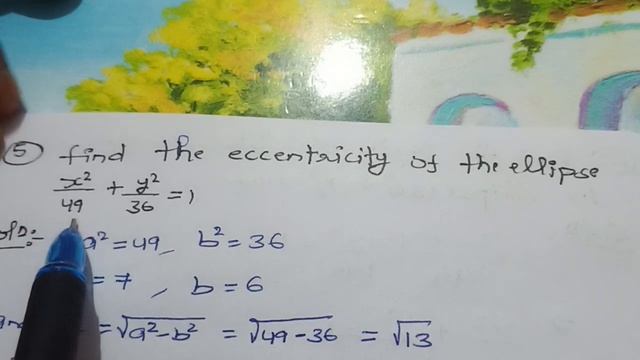 ⑤ find the eccentricity of the ellipse
x²/49 + y²/36 = 1
a² = 49, b² = 36
= 7, b = 6
= √(a²-b²) = √(49-36) = √13